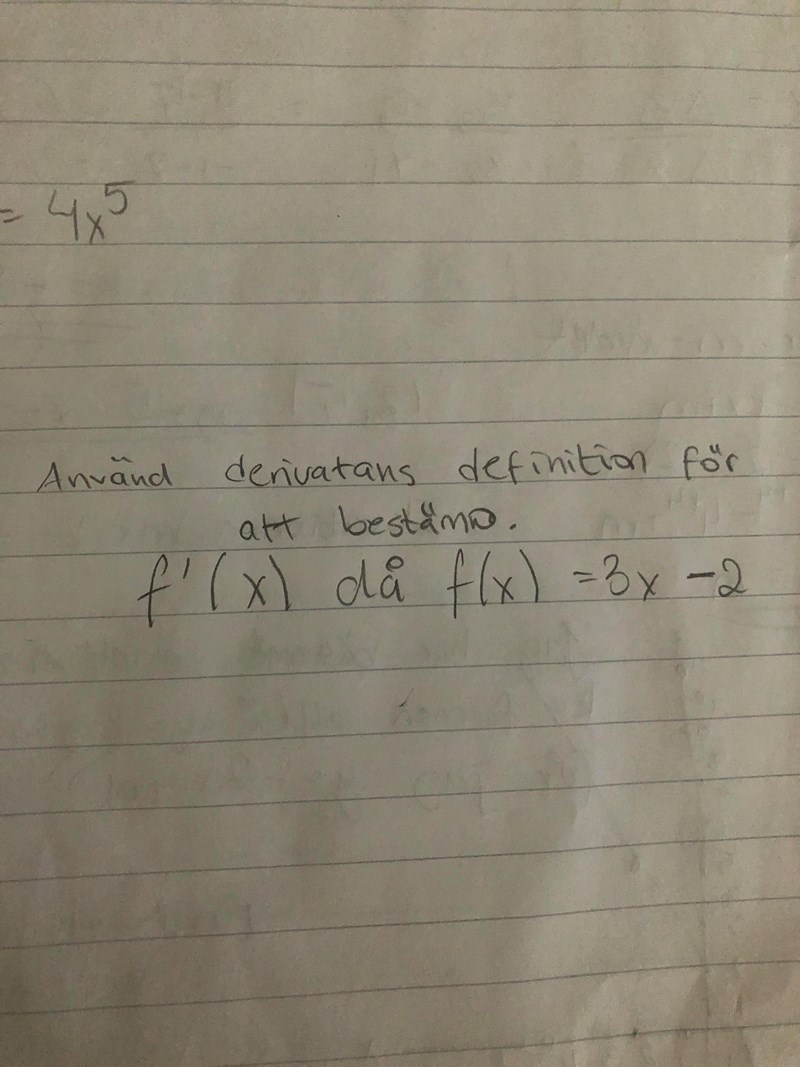 = 4x⁵
Använd derivatans definition för
att bestäma.
f'(x) då f(x) =3x -2